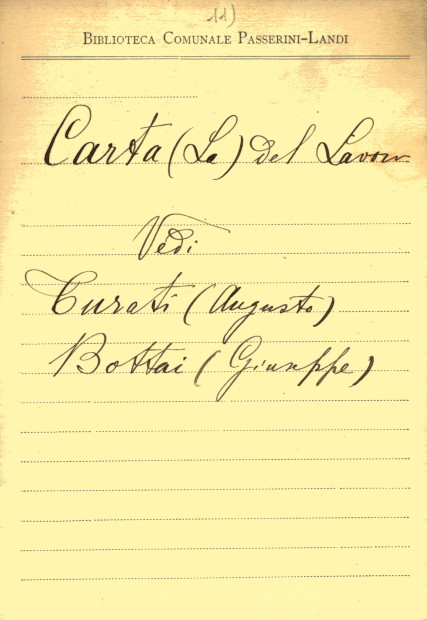 11)
BIBLIOTECA COMUNALE PASSERINI-LANDI
Carta (La) del Lavoro
Vedi
Turati (Augusto)
Bottai (Giuseppe)